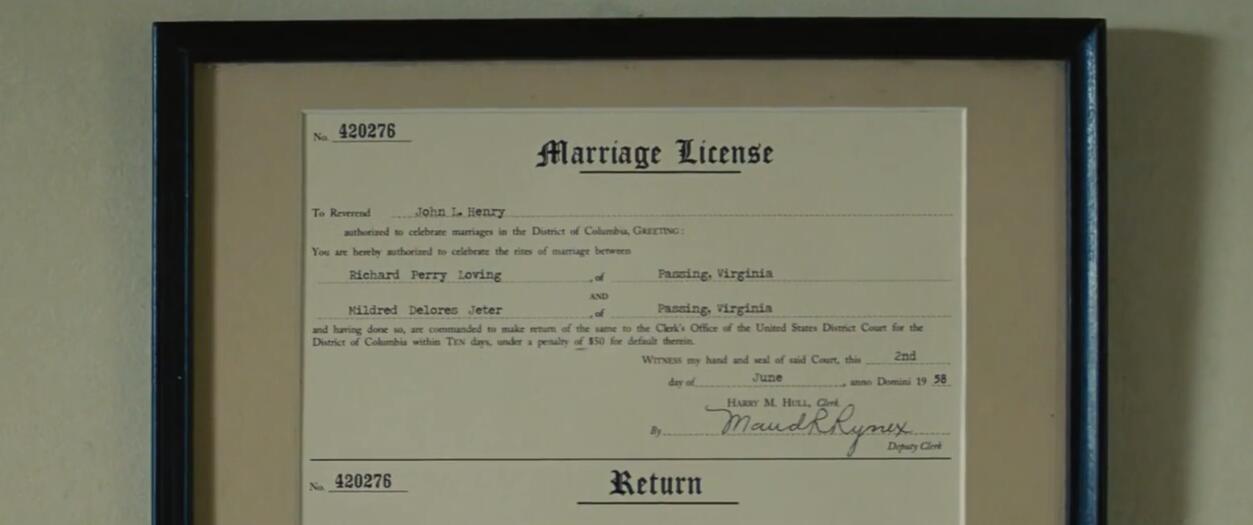 No. 420276
Marriage License
To Reverend John L. Henry
authorized to celebrate marriages in the District of Columbia, GREETING:
You are hereby authorized to celebrate the rites of marriage between
Richard Perry Loving, of Passing, Virginia
AND
Mildred Delores Jeter, of Passing, Virginia
and having done so, are commanded to make return of the same to the Clerk's Office of the United States District Court for the
District of Columbia within TEN days, under a penalty of $50 for default therein.
WITNESS my hand and seal of said Court, this 2nd
day of June, anno Domini 19 58
HARRY M. HULL, Clerk
By Maud R Rynex
Deputy Clerk
No. 420276
Return